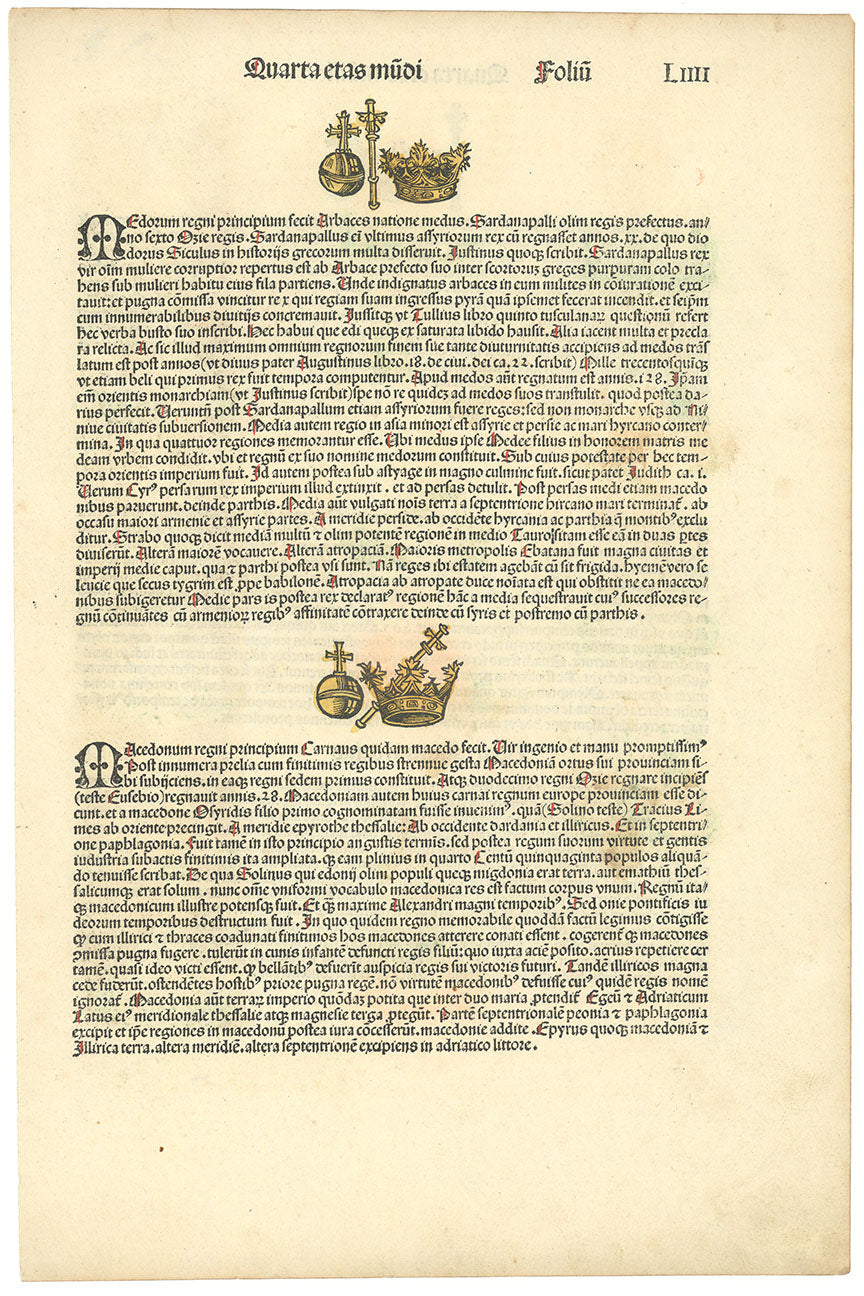 Quarta etas mūdi Foliū LIIII
MEdorum regni principium fecit Arbaces natione medus. Sardanapalli olim regis prefectus. an-
no sexto Ozie regis. Sardanapallus em̄ vltimus assyriorum rex cū regnasset annos. xx. de quo dio
dorus Siculus in historijs grecorum multa disseruit. Justinus quoqȝ scribit. Sardanapallus rex
vir oīm muliere corruptior repertus est ab Arbace prefecto suo inter scortoꝝ greges purpuram colo tra-
hens sub mulieri habitu eius fila partiens. Unde indignatus arbaces in eum milites in cōiurationē exci-
tauit: et pugna cōmissa vincitur rex qui regiam suam ingressus pyrā quā ipsemet fecerat incendit. et seipm̄
cum innumerabilibus diuitijs concremauit. Jussitqȝ vt Tullius libro quinto tusculanaꝝ questionū refert
hec verba busto suo inscribi. Hec habui que edi queqȝ exsaturata libido hausit. Alia iacent multa et precla
ra relicta. Ac sic illud maximum omnium regnorum finem sue tante diuturnitatis accipiens ad medos trās
latum est post annos (vt diuus pater Augustinus libro. 18. de ciui. dei ca. 22. scribit) Mille trecentosquīqȝ
vt etiam beli qui primus rex fuit tempora computentur. Apud medos aūt regnatum est annis. 128. Ipam
em̄ orientis monarchiam (vt Justinus scribit) spe nō re quidē ad medos suos transtulit. quod postea da-
rius perfecit. Ueruntn̄ post Sardanapallum etiam assyriorum fuere reges: sed non monarche vsqȝ ad Ni-
niue ciuitatis subuersionem. Media autem regio in asia minori est assyrie et persie ac mari hyrcano conter-
mina. In qua quattuor regiones memorantur esse. Ubi medus ipse Medee filius in honorem matris me
deam vrbem condidit. vbi et regnū ex suo nomine medorum constituit. Sub cuius potestate per hec tem-
pora orientis imperium fuit. Id autem postea sub astyage in magno culmine fuit. sicut patet Judith ca. i.
Uerum Cyrꝰ persarum rex imperium illud extinxit. et ad persas detulit. Post persas medi etiam macedo
nibus paruerunt. deinde parthis. Media aūt vulgati nois terra a septentrione hircano mari terminat̄. ab
occasu maiori armenie et assyrie partes. A meridie perside. ab occidēte hyrcania ac parthia q̄ montibꝰ exclu
ditur. Strabo quoqȝ dicit mediā multū ⁊ olim potentē regionem in medio Tauro sitam esse eā in duas ꝑtes
diuiserūt. Alterā maiorē vocauere. Alterā atropaciā. Maioris metropolis Ebatana fuit magna ciuitas et
imperij medie caput. qua ⁊ parthi postea vsi sunt. Nā reges ibi estatem agebāt cū sit frigida. hyemē vero se
leucie que secus tygrim est ꝓpe babilonē. Atropacia ab atropate duce noīata est qui obstitit ne ea macedo-
nibus subigeretur Medie pars is postea rex declaratꝰ regionē hāc a media sequestrauit cuiꝰ successores re-
gnū cōtinuātes cū armenioꝝ regibꝰ affinitatē cōtraxere deinde cū syris et postremo cū parthis.
MAcedonum regni principium Carnaus quidam macedo fecit. Uir ingenio et manu promptissimꝰ
Post innumera prelia cum finitimis regibus strennue gesta Macedoniam ortus sui prouinciam si
bi subijciens. in eaqȝ regni sedem primus constituit. Atqȝ duodecimo regni Ozie regnare incipiēs
(teste Eusebio) regnauit annis. 28. Macedoniam autem huius carnai regnum europe prouinciam esse di-
cunt. et a macedone Osyridis filio primo cognominatam fuisse inuenimꝰ. quā (Solino teste) Tracius Li-
mes ab oriente precingit. A meridie epyrothe thessalie: Ab occidente dardania et illiricus. Et in septentri-
one paphlagonia. Fuit tamē in isto principio angustis termīs. sed postea regum suorum virtute et gentis
iudustria subactis finitimis ita ampliata. qȝ eam plinius in quarto Centū quinquaginta populos aliquā-
do tenuisse scribat. De qua Solinus qui edonij olim populi queqȝ migdonia erat terra. aut emathiū thes-
salicumqȝ erat solum. nunc omē vniformi vocabulo macedonica res est factum corpus vnum. Regnū ita-
qȝ macedonicum illustre potensqȝ fuit. Et qȝ maxime Alexandri magni temporibꝰ. Sed onie pontificis iu
deorum temporibus destructum fuit. In quo quidem regno memorabile quoddā factū legimus cōtigisse
qȝ cum illirici ⁊ thraces coadunati finitimos hos macedones atterere conati essent. cogerent qȝ macedones
ꝯmissa pugna fugere. tulerūt in cunis infantē defuncti regis filiū: quo iuxta aciē posito. acrius repetiere cer
tamē. quasi ideo victi essent. qȝ bellātibꝰ defuerūt auspicia regis sui victoris futuri. Tandē illiricos magna
cede fuderūt. ostendētes hostibꝰ priore pugna regē. nō virtutē macedonibꝰ defuisse cuiꝰ quidē regis nomē
ignorat̄. Macedonia aūt terraꝝ imperio quōdaꝫ potita que inter duo maria ꝓtendit̄ Egeū ⁊ Adriaticum
Latus eiꝰ meridionale thessalie atqȝ magnesie terga ꝓtegūt. Partē septentrionalē peonia ⁊ paphlagonia
excipit et ip̄e regiones in macedonū postea iura cōcesserūt. macedonie addite. Epyrus quoqȝ macedoniā ⁊
Illirica terra. altera meridiē. altera septentrionē excipiens in adriatico littore.